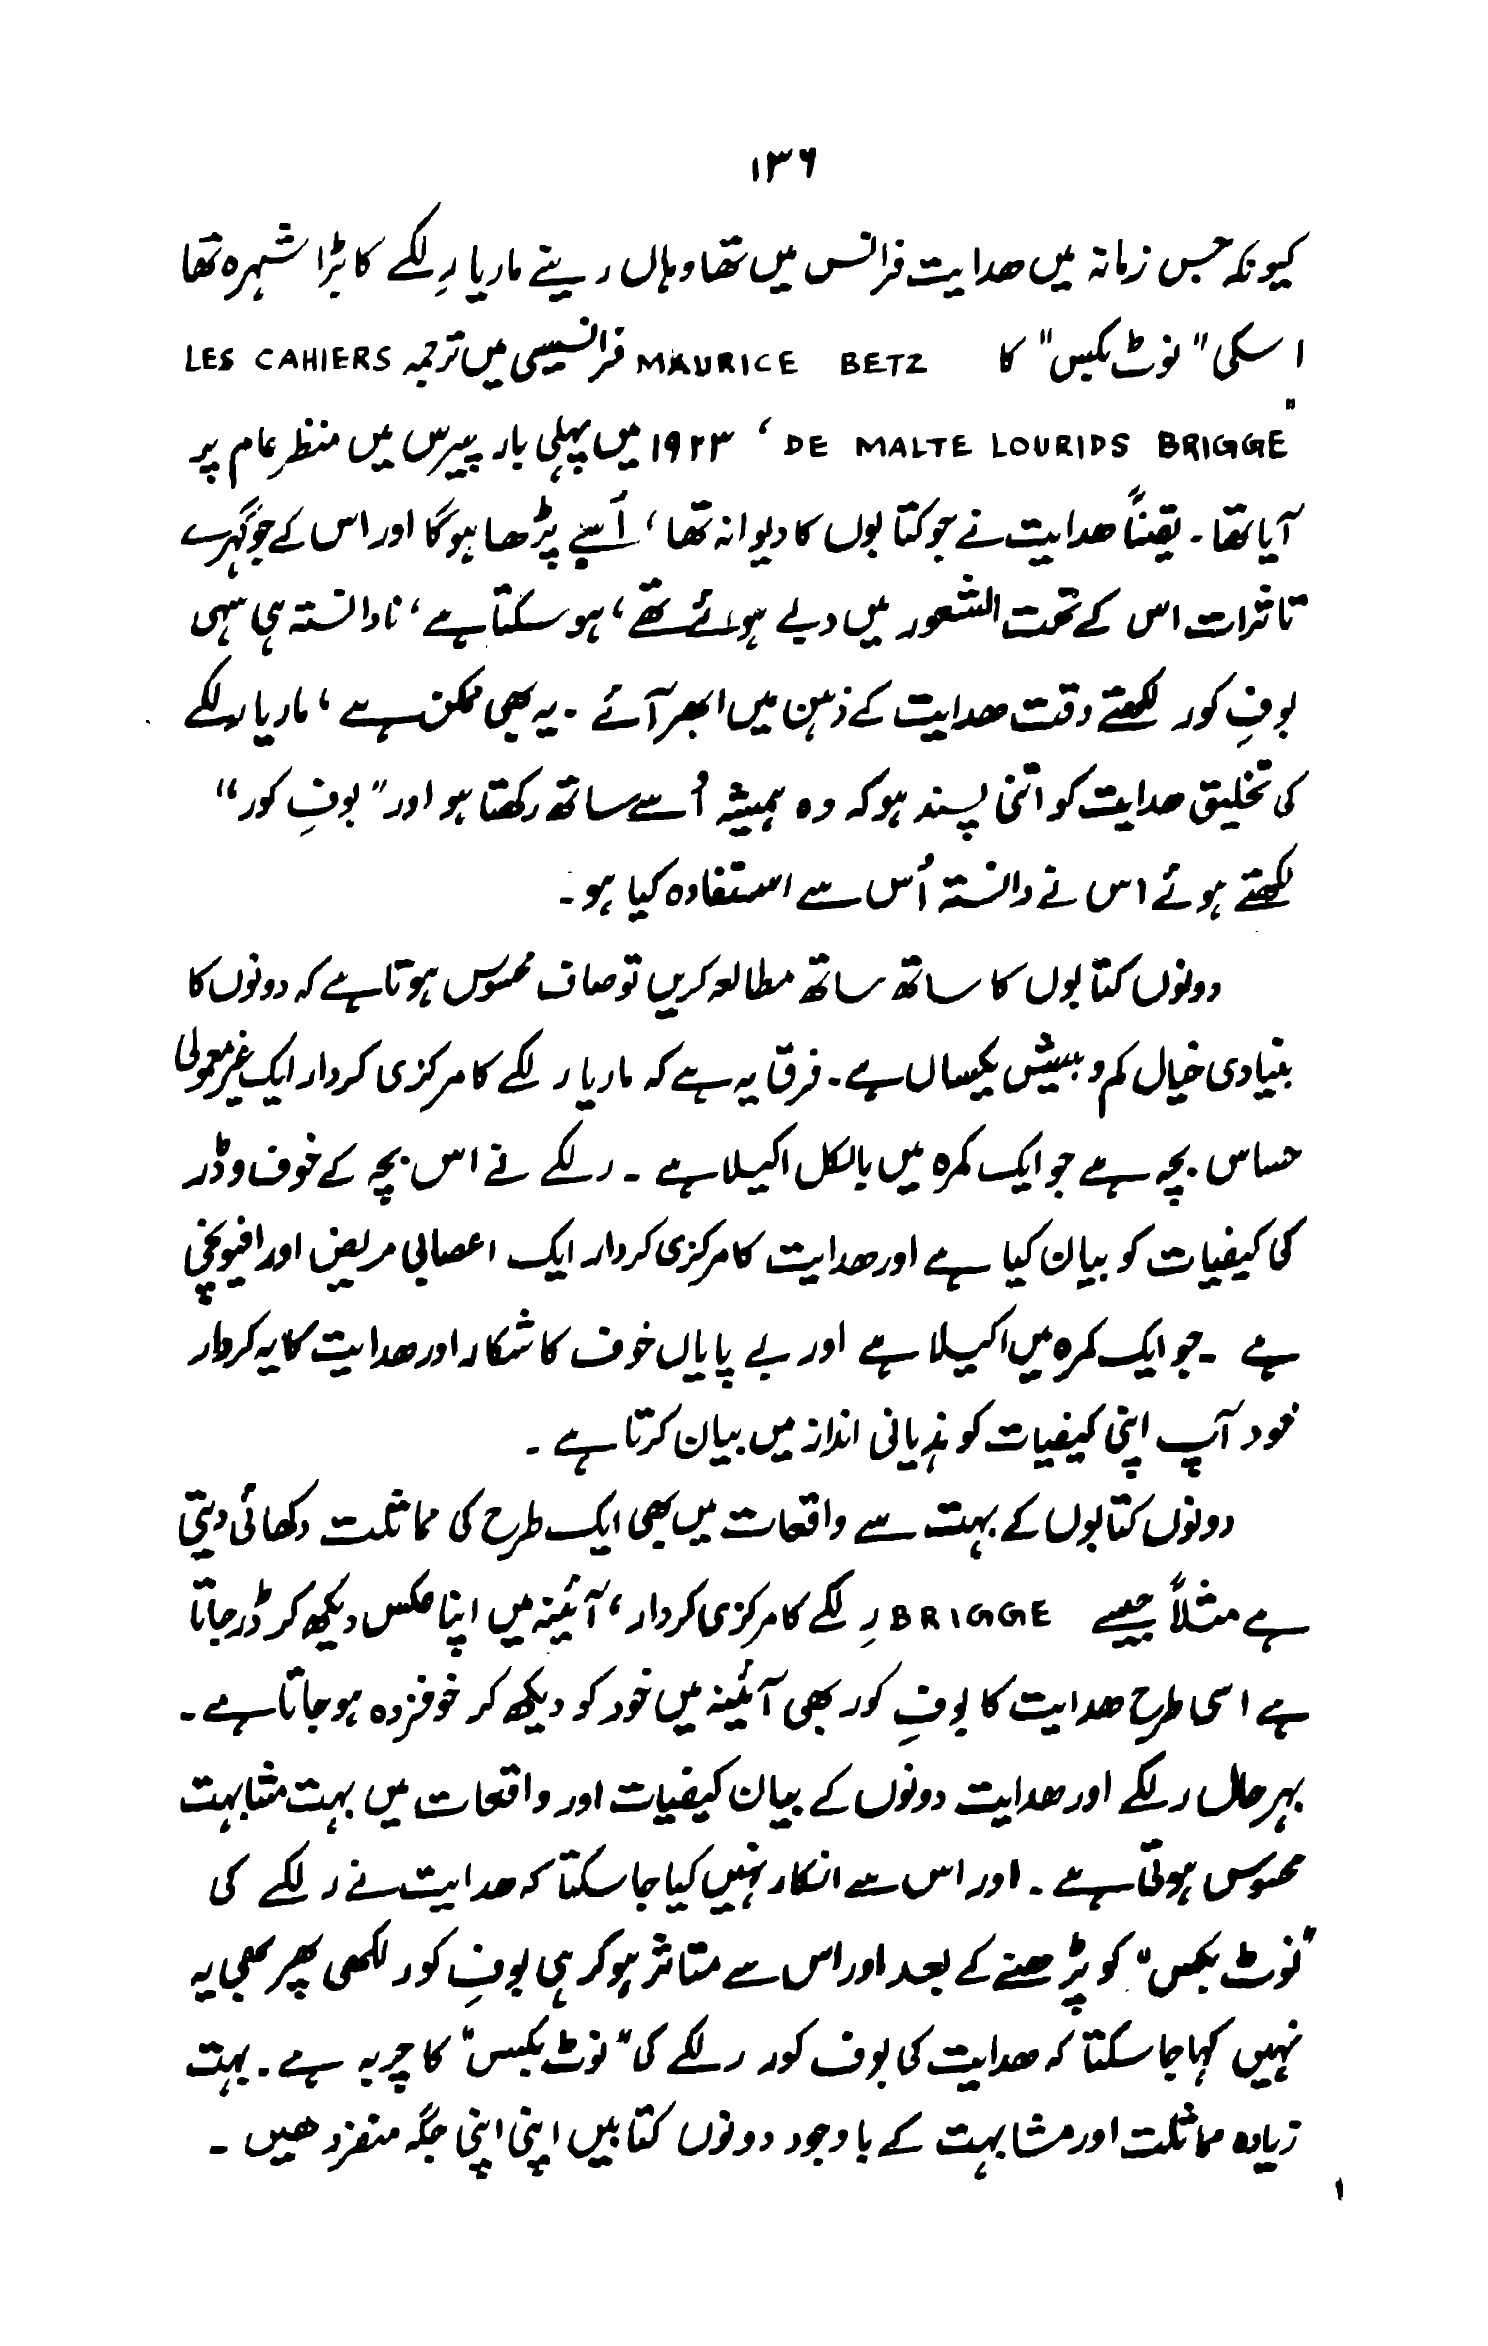 ۱۳۶
کیونکہ جس زمانہ میں ھدایت فرانس میں تھا وہاں رینے ماریا رِلکے کا بڑا شہرہ تھا
اسکی "نوٹ بکس" کا MAURICE BETZ فرانسیسی میں ترجمہ LES CAHIERS
DE MALTE LOURIDS BRIGGE" ، ۱۹۲۳ میں پہلی بار پیرس میں منظر عام پر
آیا تھا۔ یقیناً ھدایت نے جو کتابوں کا دیوانہ تھا، اُسے پڑھا ہوگا اور اس کے جو گہرے
تاثرات اس کے تحت الشعور میں دبے ہوئے تھے، ہو سکتا ہے، نادانستہ ہی سہی
بوفِ کور لکھتے وقت ھدایت کے ذہن میں ابھر آئے۔ یہ بھی ممکن ہے، ماریا رلکے
کی تخلیق ھدایت کو اتنی پسند ہو کہ وہ ہمیشہ اُسے ساتھ رکھتا ہو اور "بوفِ کور"
لکھتے ہوئے اس نے دانستہ اُس سے استفادہ کیا ہو۔
دونوں کتابوں کا ساتھ ساتھ مطالعہ کریں تو صاف محسوس ہوتا ہے کہ دونوں کا
بنیادی خیال کم و بیش یکساں ہے۔ فرق یہ ہے کہ ماریا رلکے کا مرکزی کردار ایک غیر معمولی
حساس بچہ ہے جو ایک کمرہ میں بالکل اکیلا ہے۔ رلکے نے اس بچہ کے خوف و ڈر
کی کیفیات کو بیان کیا ہے اور ھدایت کا مرکزی کردار ایک اعصابی مریض اور افیونچی
ہے۔ جو ایک کمرہ میں اکیلا ہے اور بے پایاں خوف کا شکار اور ھدایت کا یہ کردار
خود آپ اپنی کیفیات کو ہذیانی انداز میں بیان کرتا ہے۔
دونوں کتابوں کے بہت سے واقعات میں بھی ایک طرح کی مماثلت دکھائی دیتی
ہے مثلاً جیسے BRIGGE رِلکے کا مرکزی کردار، آئینہ میں اپنا عکس دیکھ کر ڈر جاتا
ہے اسی طرح ھدایت کا بوفِ کور بھی آئینہ میں خود کو دیکھ کر خوفزدہ ہو جاتا ہے۔
بہرحال رلکے اور ھدایت دونوں کے بیان کیفیات اور واقعات میں بہت مشابہت
محسوس ہوتی ہے۔ اور اس سے انکار نہیں کیا جا سکتا کہ ھدایت نے رلکے کی
"نوٹ بکس" کو پڑھنے کے بعد اور اس سے متاثر ہو کر ہی بوفِ کور لکھی پھر بھی یہ
نہیں کہا جا سکتا کہ ھدایت کی بوف کور رلکے کی "نوٹ بکس" کا چربہ ہے۔ بہت
زیادہ مماثلت اور مشابہت کے باوجود دونوں کتابیں اپنی اپنی جگہ منفرد ھیں۔
۱